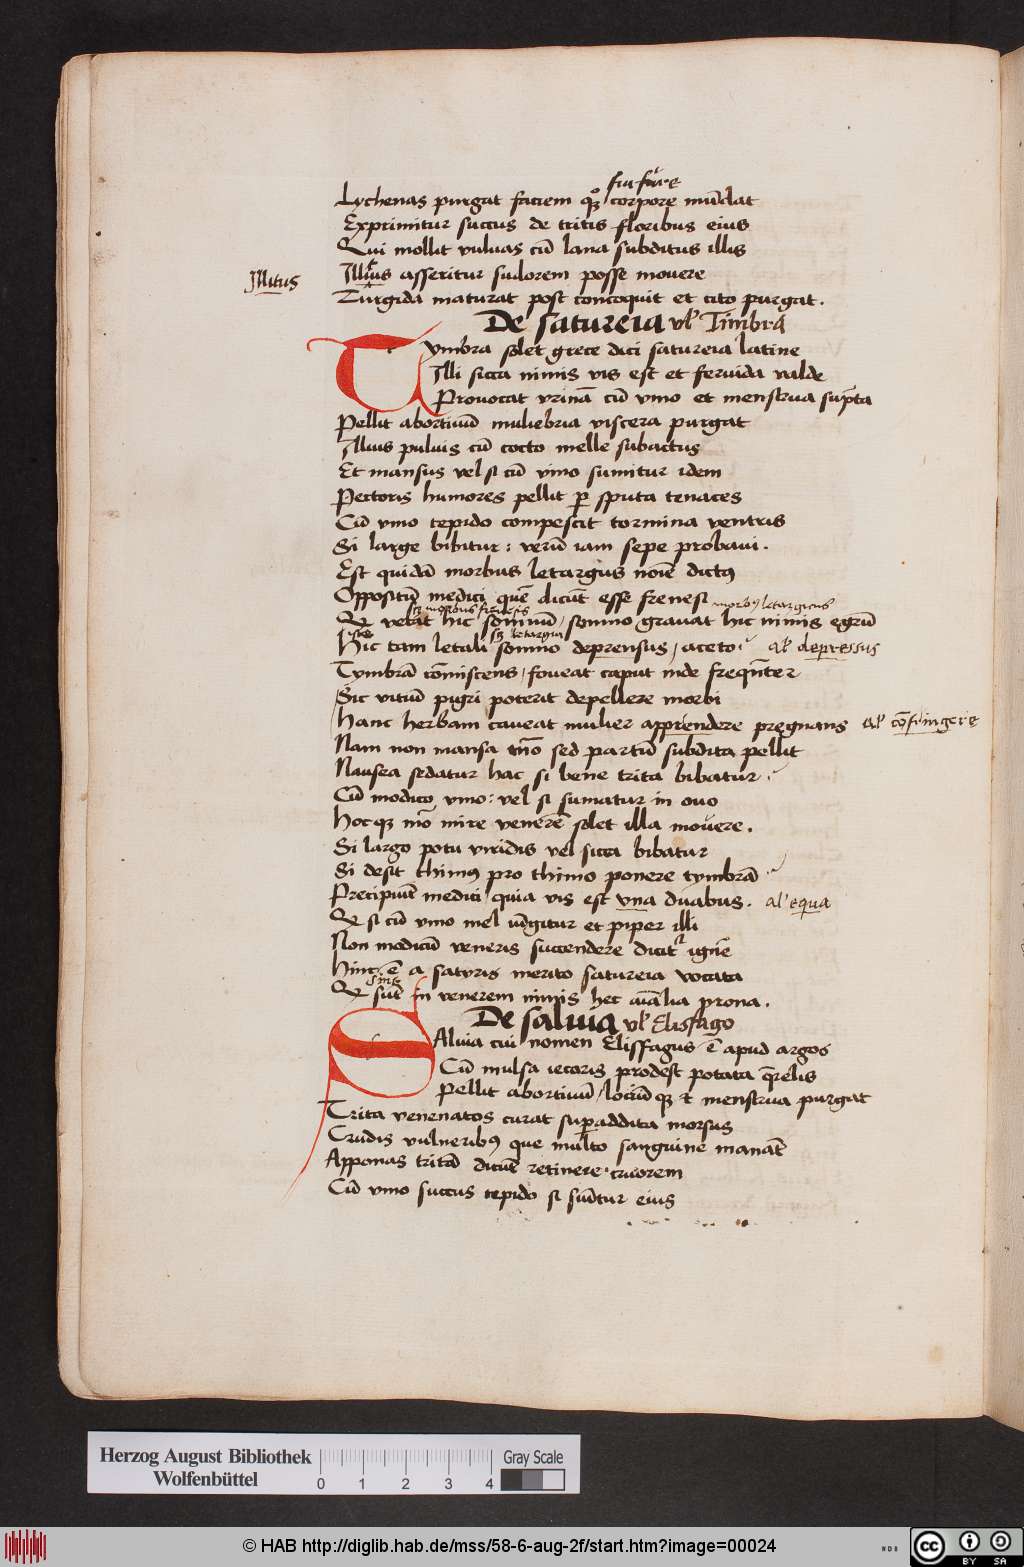 furfure
Lychenas purgat faciem qꝫ corpore mūdat
Exprimitur succus de tritis floribus eius
Qui mollit vuluas cū lana subditus illis
Illitus
Illius asseritur sudorem posse mouere
Turgida maturat post concoquit et cito purgat.
De satureia vl' Timbra
Tymbra solet grece dici satureia latine
Illi sicca nimis vis est et feruida valde
Prouocat vrinā cū vino et menstrua sūpta
Pellit abortiuū muliebria viscera purgat
Illius puluis cū cocto melle subactus
Et mansus vel si cū vino sumitur idem
Pectoris humores pellit ꝑ sputa tenaces
Cū vino tepido compescit tormina ventris
Si large bibitur: verū iam sepe probaui.
Est quidā morbus letargus noīe dictꝰ
Oppositū medici quē dicūt esse frenesi
sꝫ morbus frenesis morbꝰ letargicus
Qꝫ vetat hic somnū / somno grauat hic nimis egrū
sꝫ letargia
Hic tam letali somno deprensus / aceto al' depressus
Tymbrā cōmiscens / foueat caput inde freqn̄ter
Sic vitiū pigri poterit depellere morbi
Hanc herbam caueat mulier apprendere pregnans al' cōfringere
Nam non mansa mō sed partū subdita pellit
Nausea sedatur hac si bene trita bibatur
Cū modico vino: vel si sumatur in ouo
Hocqꝫ mō mire venerē solet illa mouere.
Si largo potu viridis vel sicca bibatur
Si desit thimꝰ pro thimo ponere tymbrā
Precipiūt medici / quia vis est vna duabus. al' equa
Qꝫ si cū vino mel iūgitur et piper illi
Non modicū veneris succendere dicitr ignē
Hinc ē a satyris merito satureia vocata
Qꝫ sūt in venerem nimis hec aīalia prona.
De saluia vl' Elisfago
Saluia cui nomen Elissfagus ē apud argos
Cū mulsa iecoris prodest potata q̄relis
Pellit abortiuū / lociū qꝫ et menstrua purgat
Trita venenatos curat superaddita morsus
Crudis vulneribꝰ que multo sanguine manāt
Apponas tritā dicūt retinere cruorem
Cū vino succus tepido si sūatur eius
Herzog August Bibliothek
Wolfenbüttel
0 1 2 3 4
Gray Scale
© HAB http://diglib.hab.de/mss/58-6-aug-2f/start.htm?image=00024
WDB
cc BY SA